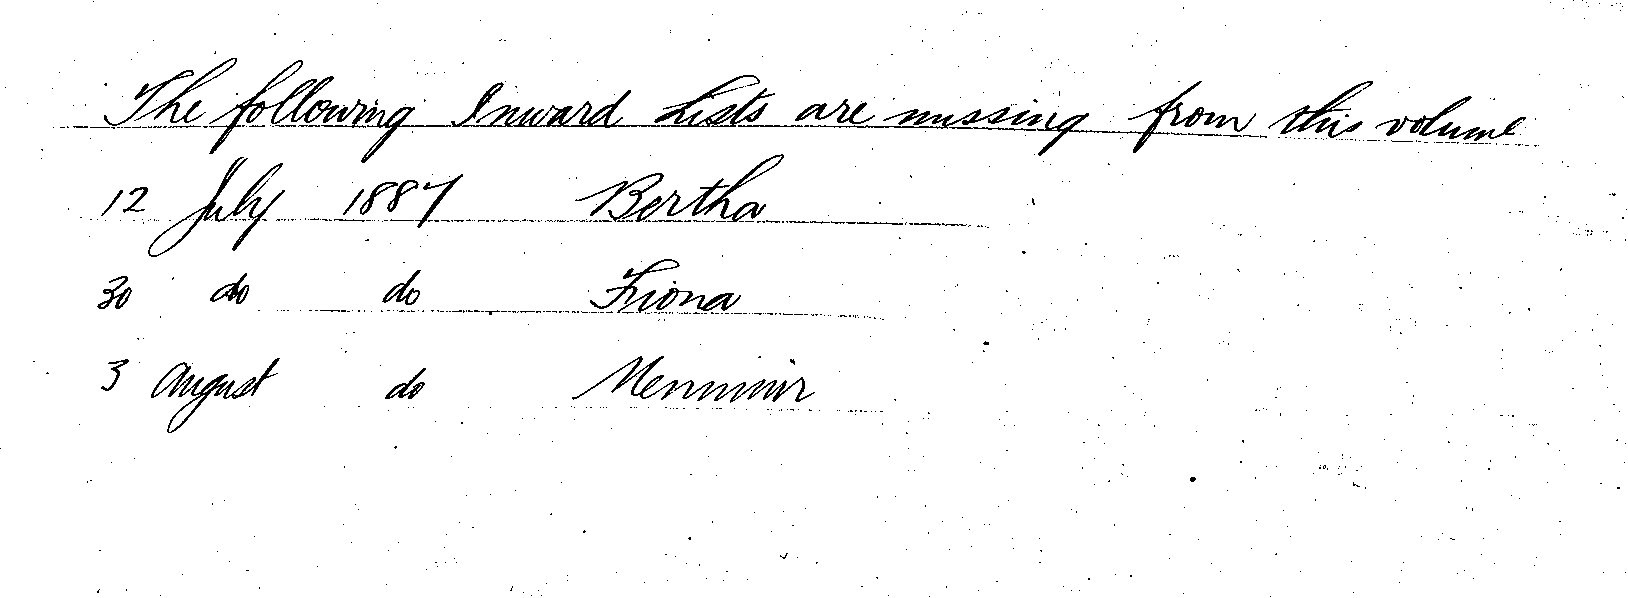 The following Inward Lists are missing from this volume
12 July 1887 Bertha
30 do do Fiona
3 August do Menmuir